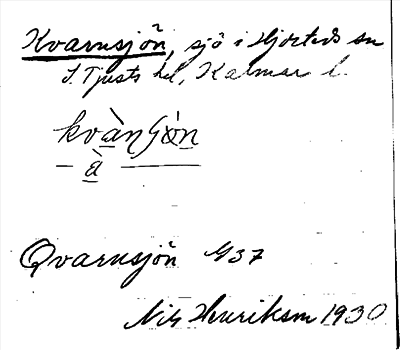 Kvarnsjön, sjö i Hjorteds sn
S. Tjusts hd, Kalmar l.
Qvarnsjön G37
Nils Henrikson 1930